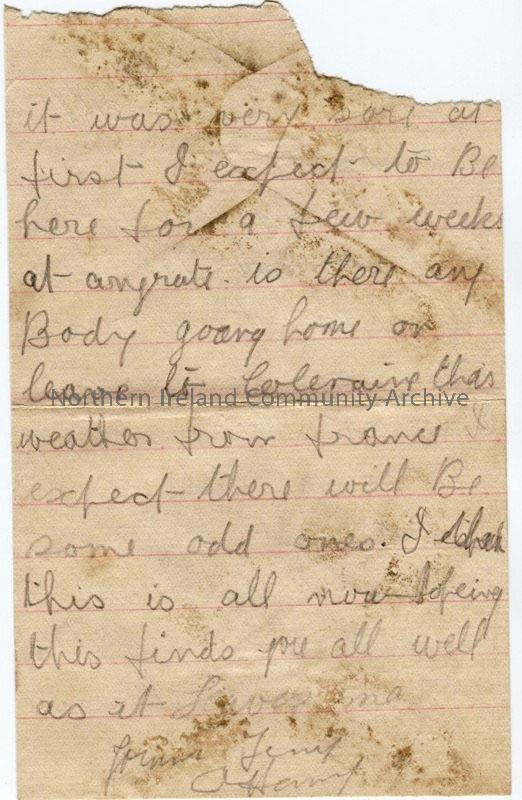 it was very sore at
first I expect to Be
here for a few weeks
at anyrate. is there any
Body goang home on
leave to Coleraine this
Northern Ireland Community Archive
weather from france
expect there will Be
some odd ones. I think
this is all now hopeing
this finds you all well
as it leaves me